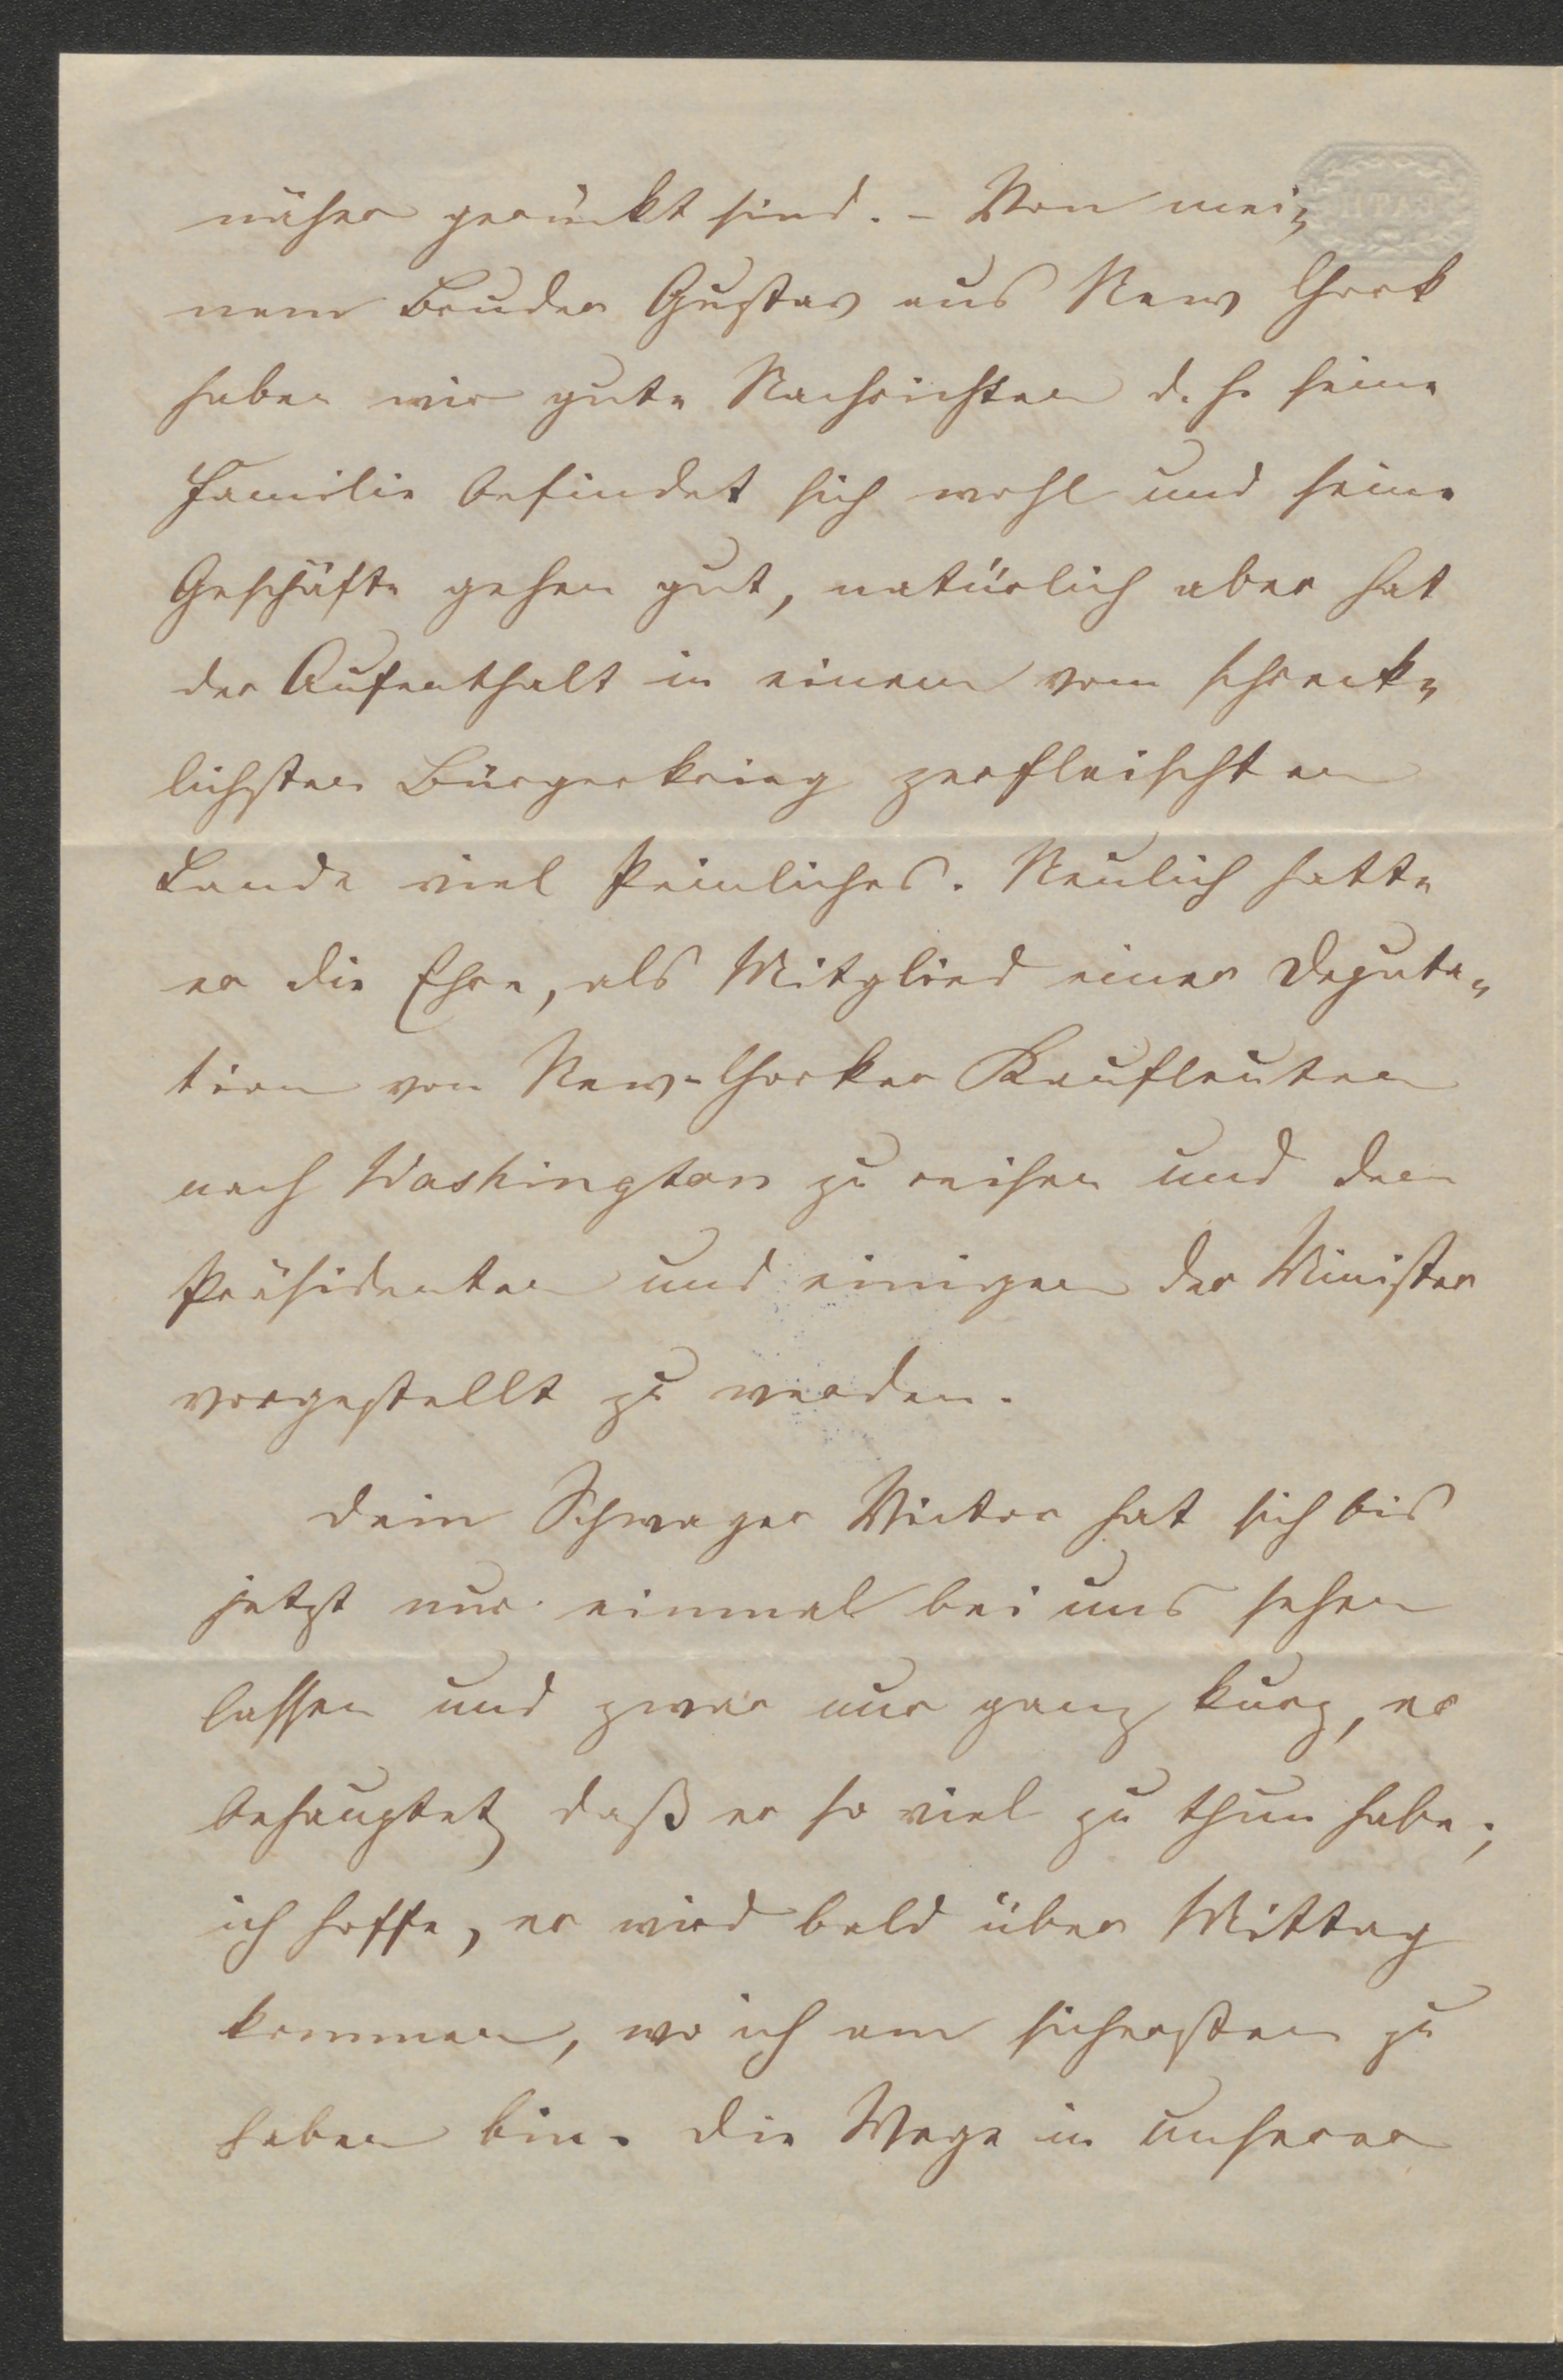 näher gerückt sind. – Von mei-
nem Bruder Gustav aus New York
haben wir gute Nachrichten d. h. seine
Familie befindet sich wohl und seine
Geschäfte gehen gut, natürlich aber hat
der Aufenthalt in einem vom schreck-
lichsten Bürgerkrieg zerfleischten
Lande viel Peinliches. Neulich hatte
er die Ehre, als Mitglied einer Deputa-
tion von New-Yorker Kaufleuten
nach Washington zu reisen und dem
Präsidenten und einigen der Minister
vorgestellt zu werden.
Dein Schwager Victor hat sich bis
jetzt nur einmal bei uns sehen
lassen und zwar nur ganz kurz, er
behauptet, daß er so viel zu thun habe;
ich hoffe, er wird bald über Mittag
kommen, wo ich am sichersten zu
haben bin. Die Wege in unserer